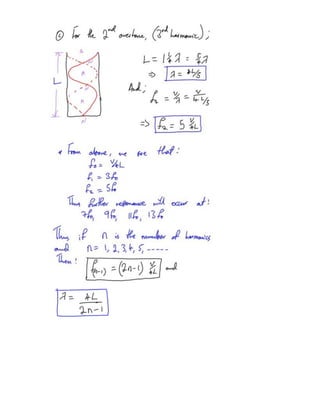 © For the 2nd overtone, (3rd harmonic);
L = 1¼λ = 5/4 λ
L
⇒ λ = 4L/5
And;
f₂ = V/λ = V/4L/5
⇒ f₂ = 5 V/4L
* From above, we see that:
f₀ = V/4L
f₁ = 3f₀
f₂ = 5f₀
Thus further resonance will occur at:
7f₀, 9f₀, 11f₀, 13f₀
Thus if n is the number of harmonics
and n = 1, 2, 3, 4, 5, -----
Then: f(n-1) = (2n-1) V/4L and
λ = 4L/2n-1